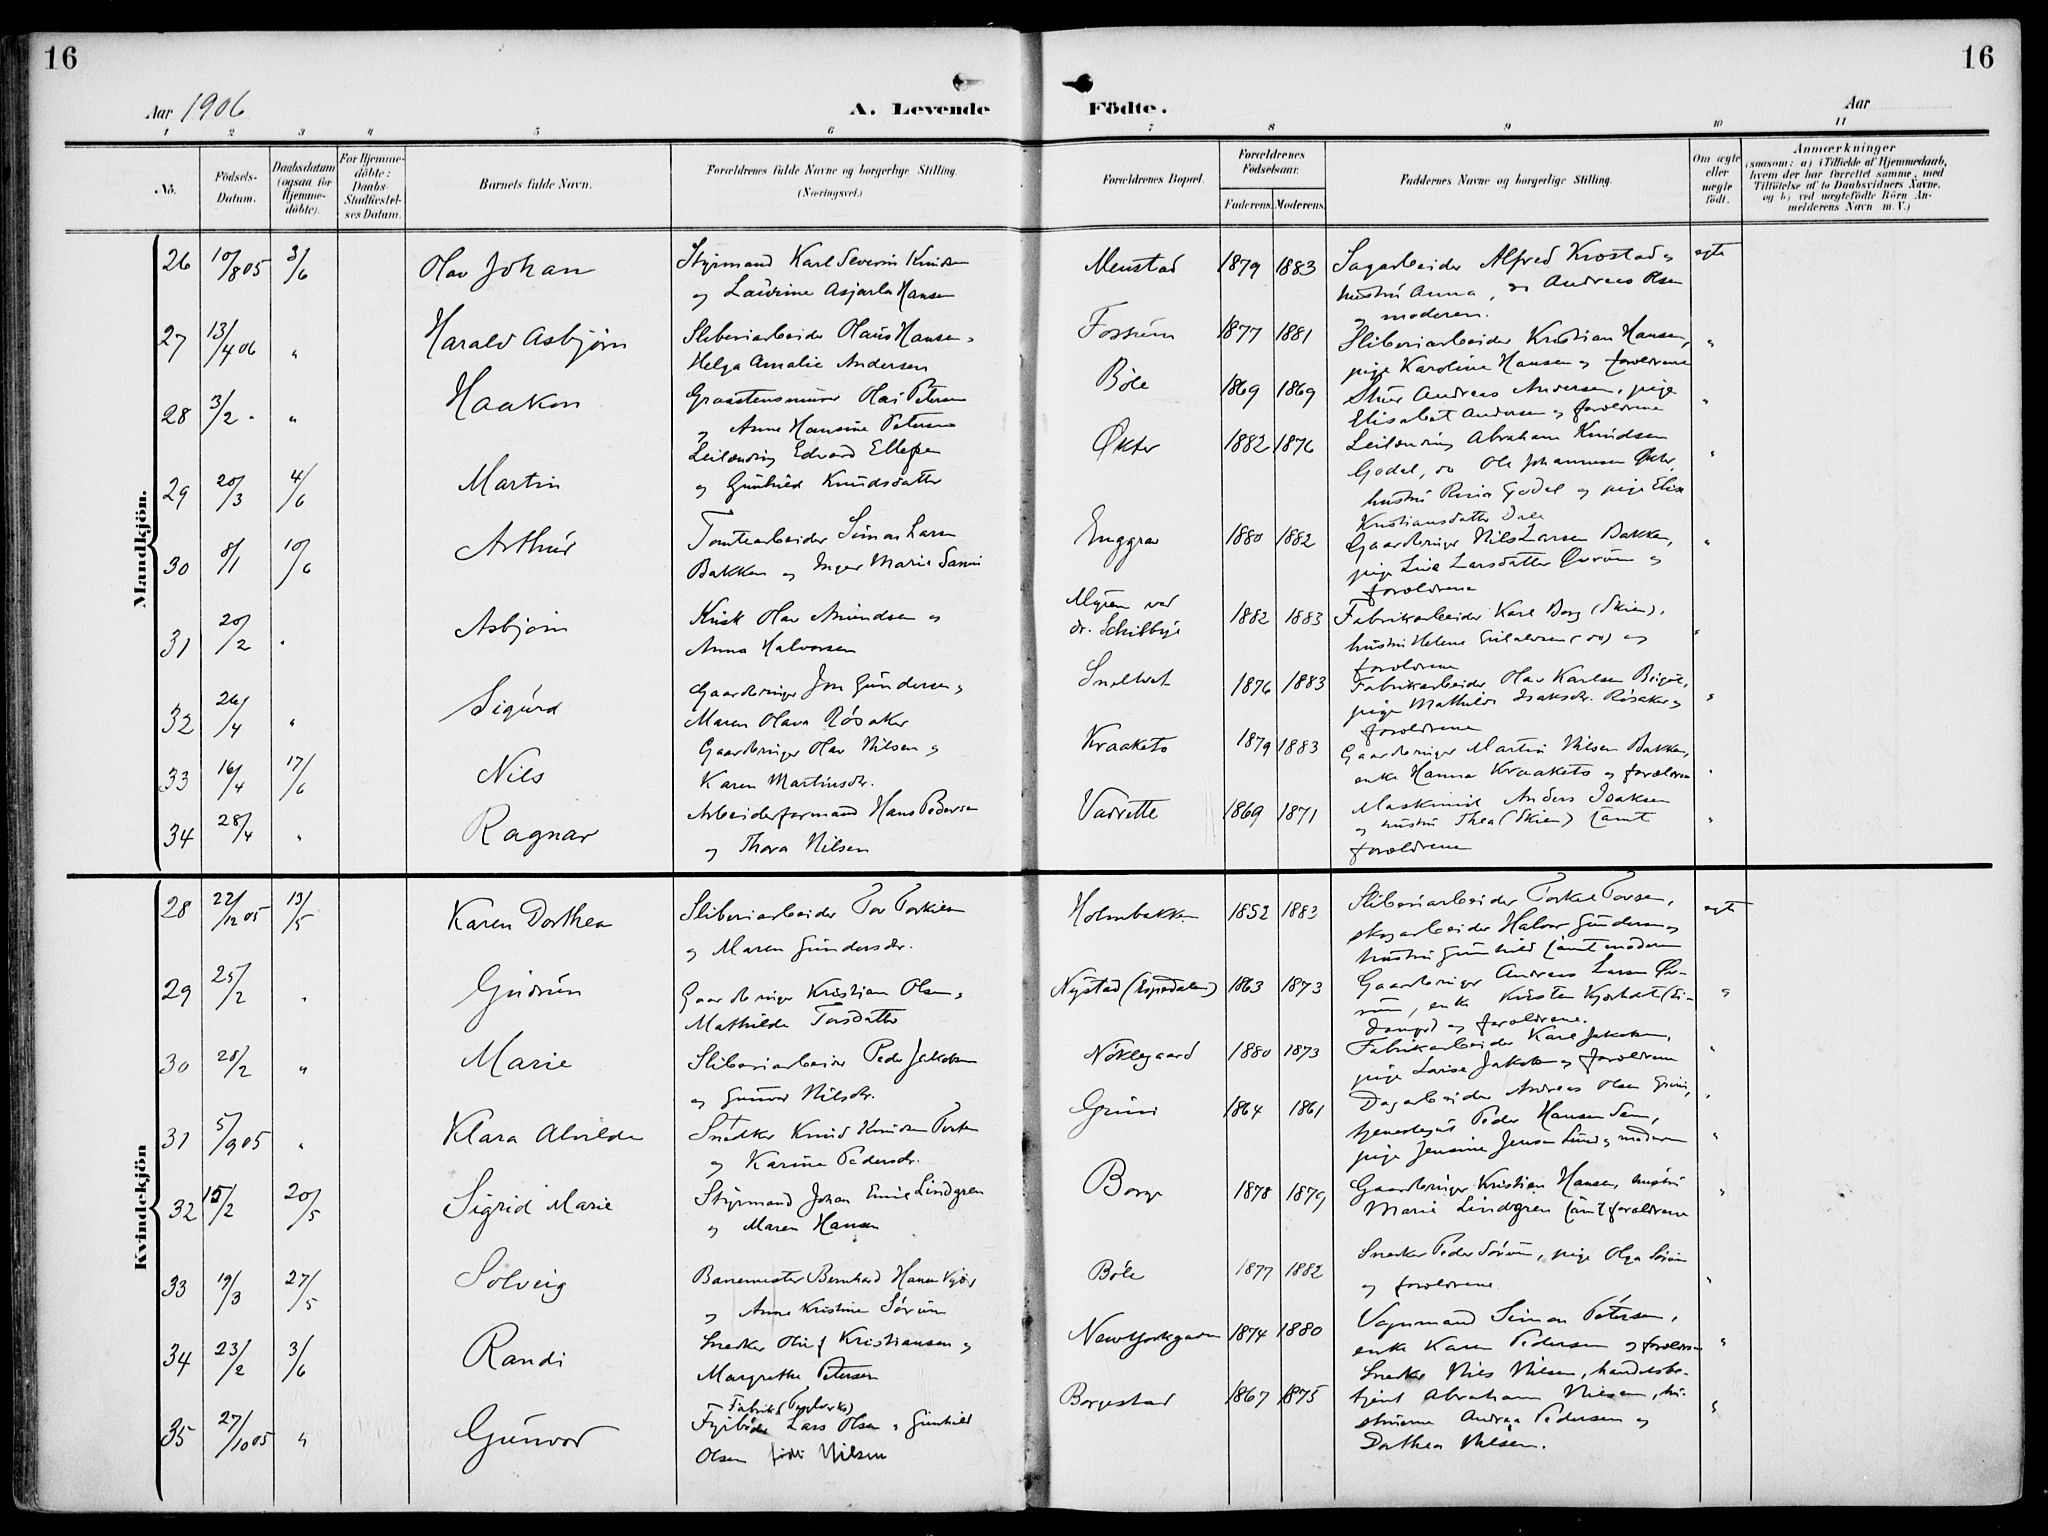 16
16
Aar 1906
A. Levende
Födte.
Aar
1 2 3 4 5 6 7 8 9 10 11
No.
Födsels-Datum.
Daabsdatum (ogsaa for Hjemme-döbte).
For Hjemme-döbte: Daabs-Stadfæstel-ses Datum.
Barnets fulde Navn.
Forældrenes fulde Navne og borgerlige Stilling. (Næringsvei.)
Forældrenes Bopæl.
Forældrenes Födselsaar.
Faderens. Moderens.
Faddernes Navne og borgerlige Stilling.
Om ægte eller uægte födt.
Anmærkninger
(saasom: a) i Tilfælde af Hjemmedaab, hvem der har forrettet samme, med Tilföielse af to Daabsvidners Navne, og b) ved uægtefödte Börn An-melderens Navn m. V.)
Mandkjön.
26 10/8 05 3/6 Olav Johan Styrmand Karl Severin Knudsen
og Laurine Asjarla Hansen
Menstad 1879 1883 Sagarbeider Alfred Krostad og
hustru Anna, og Andreas Olsen
og moderen.
egte
27 13/4 06 " Harald Asbjørn Sliberiarbeider Olaus Hansen og
Helga Amalie Andersen
Fossum 1877 1881 Sliberiarbeider Kristian Hansen,
pige Karoline Hansen og forældrene
"
28 3/2 " " Haakon Graastensmurer Olai Petersen
og Anne Hansine Petersen
Bøle 1869 1869 Andreas Andersen, pige
Elisabet Andersen og forældrene
"
29 20/3 4/6 Martin Leilænding Edvard Ellefsen
og Gunhild Knudsdatter
Økter 1882 1876 Leilænding Abraham Knudsen
Godal, do Ole Johannesen Økter,
hustru Godal og pige Elise
Kristiansdatter Dale
"
30 8/1 10/6 Arthur Tomtearbeider Simon Larsen
Bakken og Inger Marie
Enggrav 1880 1882 Gaardbruger Nils Larsen Bakken,
pige Lina Larsdatter og
forældrene
"
31 20/2 " Asbjørn Kusk Olav Amundsen og
Anna Halvorsen
Myren ved
dr. Schilbye
1882 1883 Fabrikarbeider Karl Borg (Skien),
hustru Helene (do) og
forældrene
"
32 26/4 " Sigurd Gaardbruger Jon Gundersen og
Maren Olava Røsaker
Sneltvet 1876 1883 Fabrikarbeider Olav Karlsen
pige Mathilde Isaksdr. Røsaker og
forældrene
"
33 16/4 17/6 Nils Gaardbruger Olav Nilsen og
Karen Martinsdr.
Kraaketo 1879 1883 Gaardbruger Martin Nilsen Bakken,
enke Hanna Kraaketo og forældrene
"
34 28/4 " Ragnar Arbeiderformand Hans Pedersen
og Thora Nilsen
Vadrette 1869 1871 Maskinist Anders Isaksen
og hustru Thea (Skien) samt
forældrene
"
Kvindekjön
28 22/12 05 13/5 Karen Dorthea Sliberiarbeider Tor Torkilsen
og Maren Gundersdr.
Holmbakken 1852 1883 Sliberiarbeider Torkel Torsen,
skogarbeider Halvor Gundersen og
hustru Gunhild samt moderen
egte
29 25/2 " Gudrun Gaardbruger Kristian Olsen og
Mathilde Torsdatter
Nystad (Espedalen) 1863 1873 Gaardbruger Andreas Larsen
enke Kirsten
og forældrene.
"
30 28/2 " Marie Sliberiarbeider Peder Jakobsen
og Gunvor Nilsdr.
Nøklegaard 1880 1873 Fabrikarbeider Karl Jakobsen,
pige Larise Jakobsen og forældrene
"
31 5/9 05 " Klara Alvilde Snedker Knud Knudsen
og Karine Pedersdr.
Gruni 1864 1861 Dagarbeider Andreas Olsen Gruni,
tjenestegut Peder Hansen Sem,
pige Jensine Jensen Lund og moderen
"
32 15/2 20/5 Sigrid Marie Styrmand Johan Emil Lindgren
og Maren Hansen
Borge 1878 1879 Gaardbruger Kristian Hansen, hustru
Marie Lindgren samt forældrene
"
33 19/3 27/5 Solveig Banemester Bernhard Hansen
og Anne Kristine Sørum
Bøle 1877 1882 Snedker Peder Sørum, pige Olga Sørum
og forældrene.
"
34 23/2 3/6 Randi Snedker Oluf Kristiansen og
Margrethe Petersen
NewYorkgaden 1874 1880 Vognmand Simon Petersen,
enke Karen Pedersen og forældrene
"
35 27/10 05 " Gunvor Fabrik (Teglverks)
Fyrbøder Lars Olsen og Gunhild
Olsen født Nilsen
Borgestad 1867 1875 Snedker Nils Nilsen, handelsbe-
tjent Abraham Nilsen, hu-
struerne Andrea Pedersen og
Dorthea Nilsen.
"